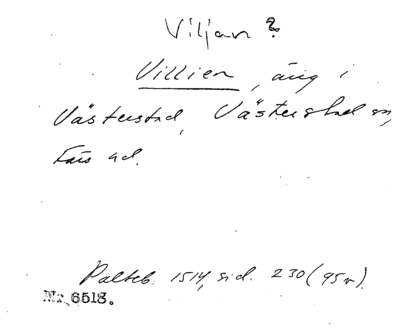 Viljan?
Villien, äng i
Västerstad, Västerstad sn,
Färs hd.
Palteb. 1514, sid. 230 (95 v).
Nr. 6518.